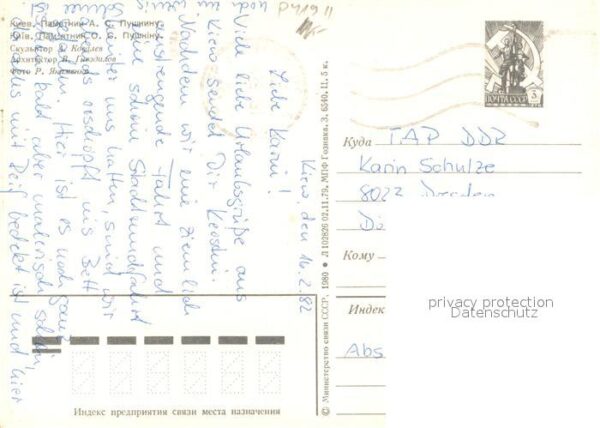 P41911
Киев. Памятник А. С. Пушкину.
Київ. Пам'ятник О. С. Пушкіну.
Скульптор А. Ковалев
Архитектор В. Гнездилов
Фото Р. Якименко
Kiew den 16.2.82
Liebe Karin!
Viele liebe Urlaubsgrüße aus
Kiew sendet Dir Kerstin.
Nachdem wir eine ziemlich
anstrengende Fahrt und
eine schöne Stadtrundfahrt
hinter uns hatten, sind wir
erschöpft ins Bett
gefallen. Hier ist es noch ganz
kalt aber malerisch schön,
alles mit Reif bedeckt ist und hier
© Министерство связи СССР, 1980 • Л 102826 02.11.79. МПФ Гознака. З. 6540. Ц. 5 к.
ПОЧТА СССР
3
Куда TAP DDR
Karin Schulze
8022 Dresden
Кому
Индек
Abs
privacy protection
Datenschutz
Индекс предприятия связи места назначения